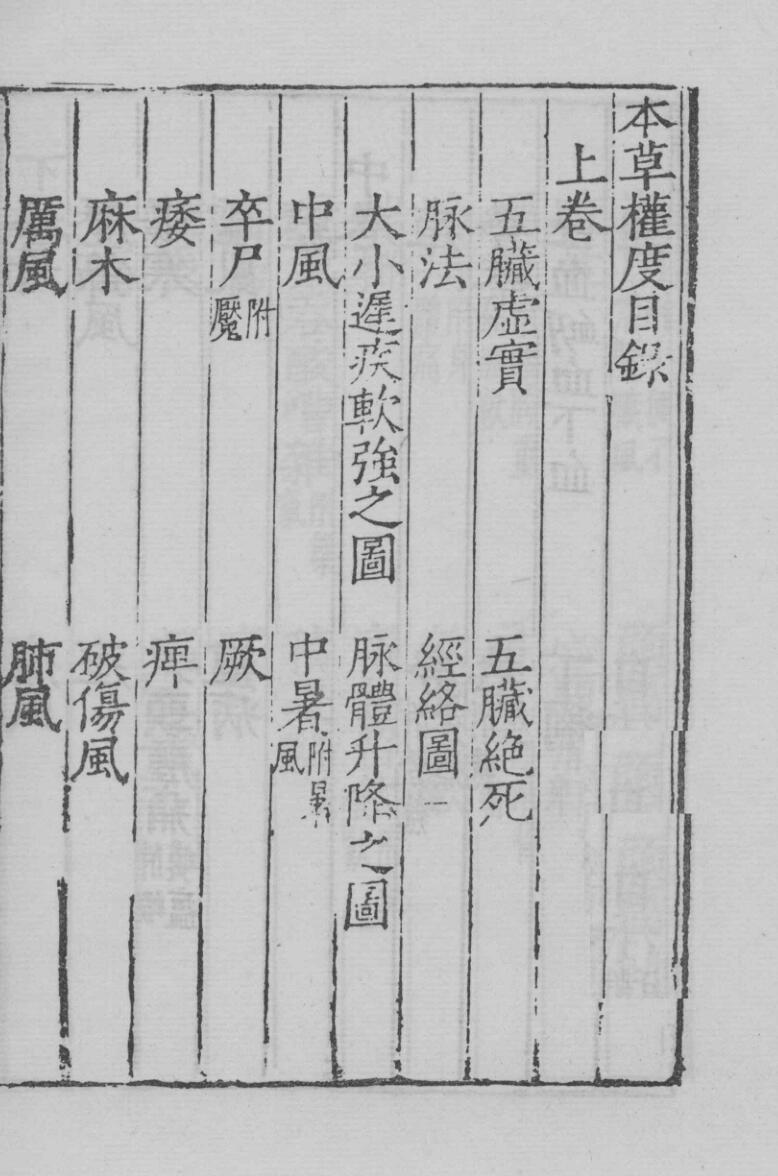 本草權度目錄
上卷
五臟虛實 五臟絕死
脉法 經絡圖
大小遲疾軟強之圖 脉體升降之圖
中風 中暑附暑風
卒尸附魘 厥
痿 痺
麻木 破傷風
厲風 肺風